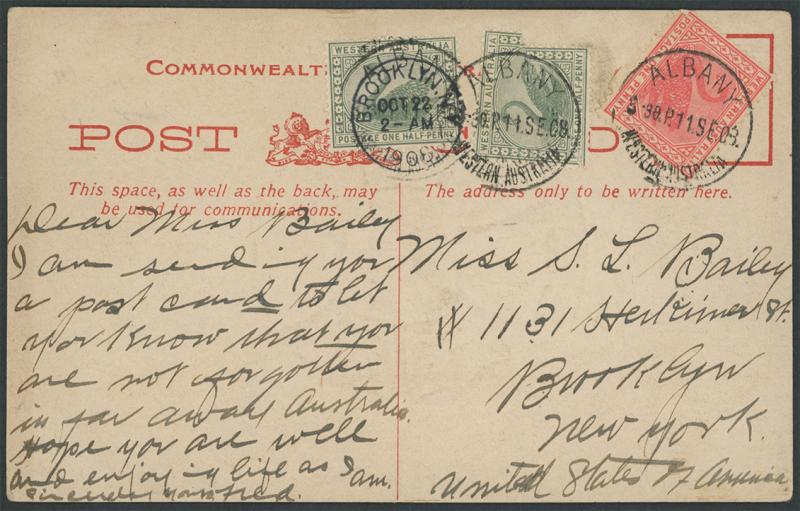 COMMONWEALT
POST
D
WESTERN AUSTRALIA
POSTAGE ONE HALF-PENNY
BROOKLYN, N.Y.
OCT 22
2-AM
1908
WESTERN AUSTRALIA
HALF-PENNY
ALBANY
5-30.P.11.SE.08.
WESTERN AUSTRALIA
POSTAGE ONE PENNY
ALBANY
5-30.P.11.SE.08.
WESTERN AUSTRALIA
This space, as well as the back, may
be used for communications.
The address only to be written here.
Dear Miss Bailey
I am sending you
a post card to let
you know that you
are not forgotten
in far away Australia.
Hope you are well
and enjoying life as I am.
Sincerely yours Fred.
Miss S. L. Bailey
# 1131 Herkimer St.
Brooklyn
New York.
United States of America